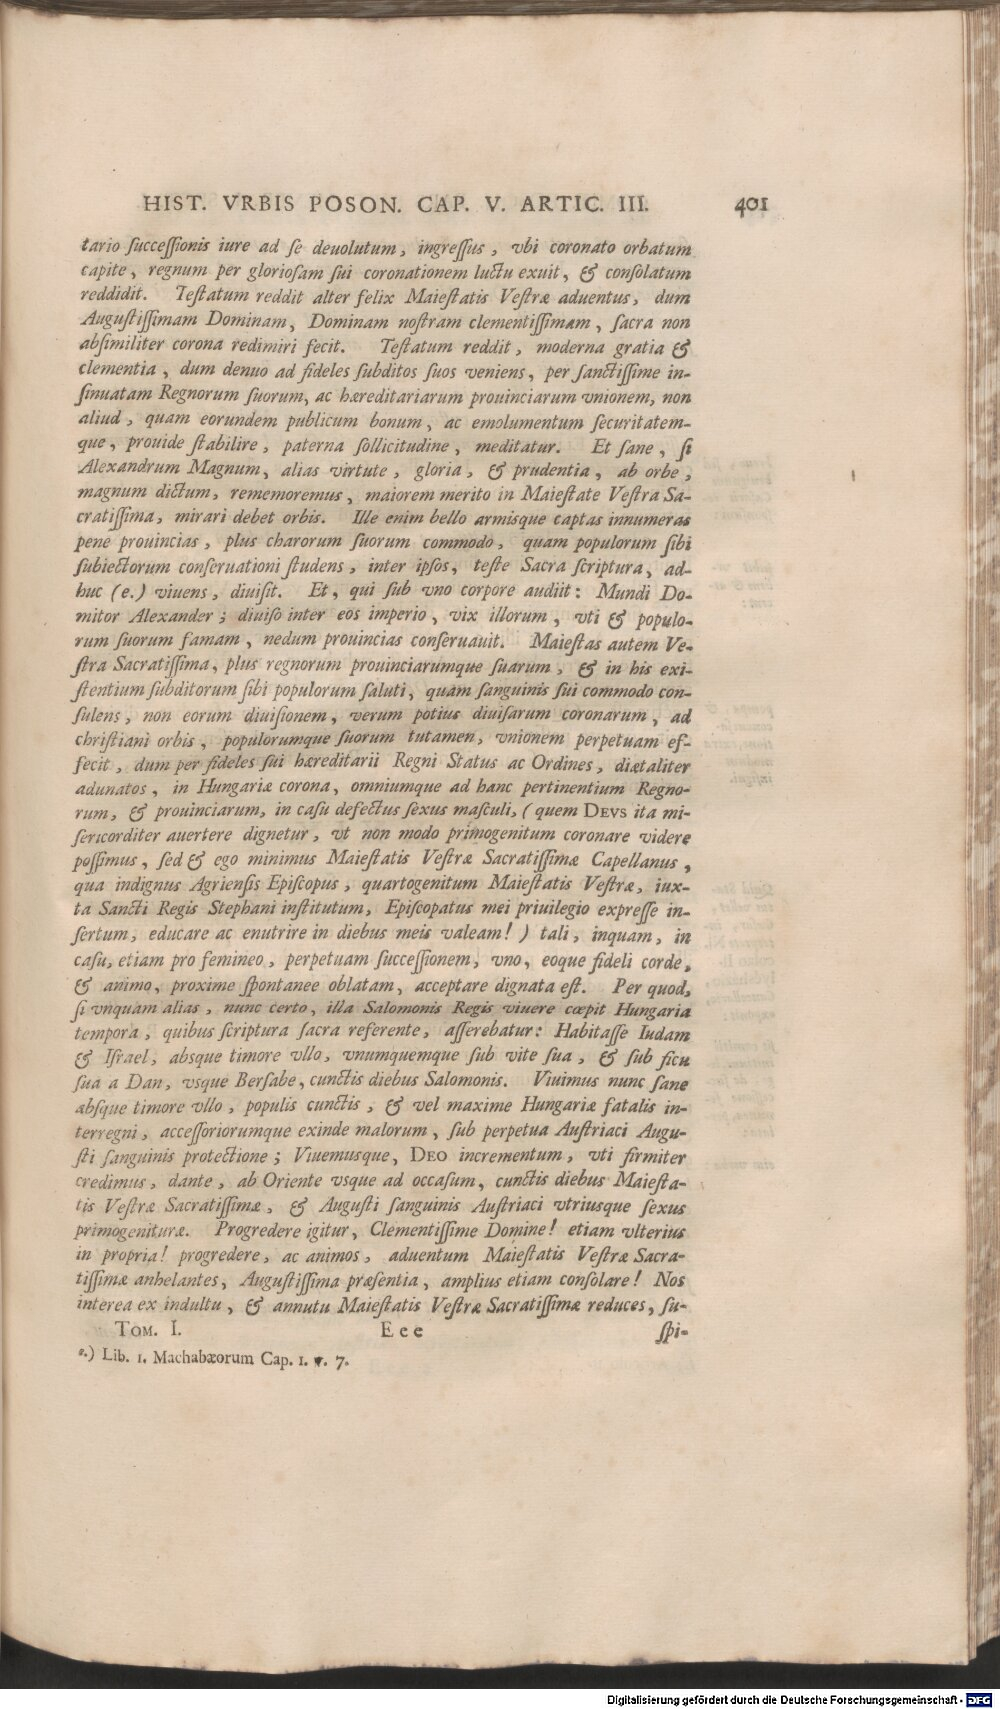 HIST. VRBIS POSON. CAP. V. ARTIC. III. 401
tario ſucceſſionis iure ad ſe deuolutum, ingreſſus, vbi coronato orbatum
capite, regnum per glorioſam ſui coronationem luctu exuit, & conſolatum
reddidit. Teſtatum reddit alter felix Maieſtatis Veſtræ aduentus, dum
Auguſtiſſimam Dominam, Dominam noſtram clementiſſimam, ſacra non
abſimiliter corona redimiri fecit. Teſtatum reddit, moderna gratia &
clementia, dum denuo ad fideles ſubditos ſuos veniens, per ſanctiſſime in-
ſinuatam Regnorum ſuorum, ac hæreditariarum prouinciarum vnionem, non
aliud, quam eorundem publicum bonum, ac emolumentum ſecuritatem-
que, prouide ſtabilire, paterna ſollicitudine, meditatur. Et ſane, ſi
Alexandrum Magnum, alias virtute, gloria, & prudentia, ab orbe,
magnum dictum, rememoremus, maiorem merito in Maieſtate Veſtra Sa-
cratiſſima, mirari debet orbis. Ille enim bello armisque captas innumeras
pene prouincias, plus charorum ſuorum commodo, quam populorum ſibi
ſubiectorum conſeruationi ſtudens, inter ipſos, teſte Sacra ſcriptura, ad-
huc (e.) viuens, diuiſit. Et, qui ſub vno corpore audiit: Mundi Do-
mitor Alexander; diuiſo inter eos imperio, vix illorum, vti & populo-
rum ſuorum famam, nedum prouincias conſeruauit. Maieſtas autem Ve-
ſtra Sacratiſſima, plus regnorum prouinciarumque ſuarum, & in his exi-
ſtentium ſubditorum ſibi populorum ſaluti, quam ſanguinis ſui commodo con-
ſulens, non eorum diuiſionem, verum potius diuiſarum coronarum, ad
chriſtiani orbis, populorumque ſuorum tutamen, vnionem perpetuam ef-
fecit, dum per fideles ſui hæreditarii Regni Status ac Ordines, diætaliter
adunatos, in Hungariæ corona, omniumque ad hanc pertinentium Regno-
rum, & prouinciarum, in caſu defectus ſexus maſculi, (quem DEVS ita mi-
ſericorditer auertere dignetur, vt non modo primogenitum coronare videre
poſſimus, ſed & ego minimus Maieſtatis Veſtræ Sacratiſſimæ Capellanus,
qua indignus Agrienſis Epiſcopus, quartogenitum Maieſtatis Veſtræ, iux-
ta Sancti Regis Stephani inſtitutum, Epiſcopatus mei priuilegio expreſſe in-
ſertum, educare ac enutrire in diebus meis valeam!) tali, inquam, in
caſu, etiam pro femineo, perpetuam ſucceſſionem, vno, eoque fideli corde,
& animo, proxime ſpontanee oblatam, acceptare dignata eſt. Per quod,
ſi vnquam alias, nunc certo, illa Salomonis Regis viuere cœpit Hungaria
tempora, quibus ſcriptura ſacra referente, aſſerebatur: Habitaſſe Iudam
& Iſrael, absque timore vllo, vnumquemque ſub vite ſua, & ſub ficu
ſua a Dan, vsque Berſabe, cunctis diebus Salomonis. Viuimus nunc ſane
absque timore vllo, populis cunctis, & vel maxime Hungariæ fatalis in-
terregni, acceſſoriorumque exinde malorum, ſub perpetua Auſtriaci Augu-
ſti ſanguinis protectione; Viuemusque, DEO incrementum, vti firmiter
credimus, dante, ab Oriente vsque ad occaſum, cunctis diebus Maieſta-
tis Veſtræ Sacratiſſimæ, & Auguſti ſanguinis Auſtriaci vtriusque ſexus
primogenituræ. Progredere igitur, Clementiſſime Domine! etiam vlterius
in propria! progredere, ac animos, aduentum Maieſtatis Veſtræ Sacra-
tiſſimæ anhelantes, Auguſtiſſima præſentia, amplius etiam conſolare! Nos
interea ex indultu, & annutu Maieſtatis Veſtræ Sacratiſſimæ reduces, ſu-
TOM. I. Eee ſpi-
e.) Lib. 1. Machabæorum Cap. 1. v. 7.
Digitalisierung gefördert durch die Deutsche Forschungsgemeinschaft - DFG